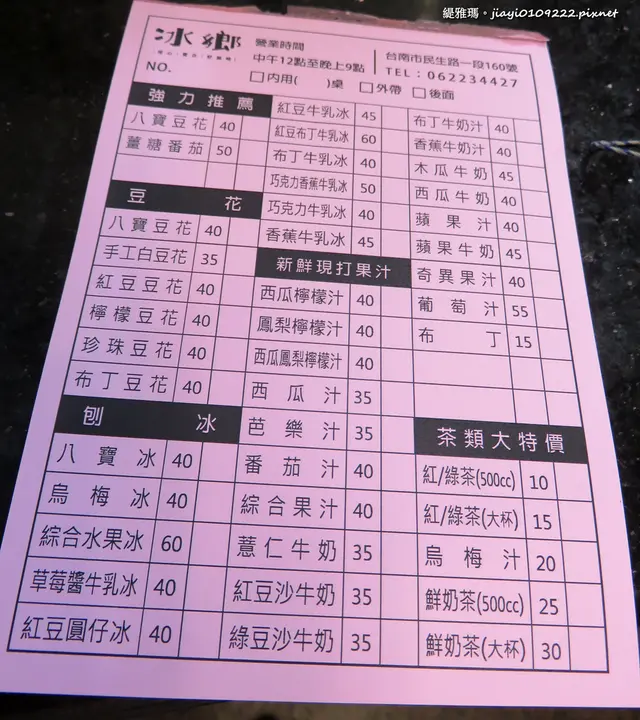 緹雅瑪。jiayi0109222.pixnet
冰鄉
營業時間
中午12點至晚上9點
台南市民生路一段160號
TEL：062234427
NO.
內用( )桌 外帶 後面
強力推薦
八寶豆花 40
薑糖番茄 50
豆花
八寶豆花 40
手工白豆花 35
紅豆豆花 40
檸檬豆花 40
珍珠豆花 40
布丁豆花 40
刨冰
八寶冰 40
烏梅冰 40
綜合水果冰 60
草莓醬牛乳冰 40
紅豆圓仔冰 40
紅豆牛乳冰 45
紅豆布丁牛乳冰 60
布丁牛乳冰 40
巧克力香蕉牛乳冰 50
巧克力牛乳冰 40
香蕉牛乳冰 45
新鮮現打果汁
西瓜檸檬汁 40
鳳梨檸檬汁 40
西瓜鳳梨檸檬汁 40
西瓜汁 35
芭樂汁 35
番茄汁 40
綜合果汁 40
薏仁牛奶 35
紅豆沙牛奶 35
綠豆沙牛奶 35
布丁牛奶汁 40
香蕉牛奶汁 40
木瓜牛奶 45
西瓜牛奶 40
蘋果汁 40
蘋果牛奶 45
奇異果汁 40
葡萄汁 55
布丁 15
茶類大特價
紅/綠茶(500cc) 10
紅/綠茶(大杯) 15
烏梅汁 20
鮮奶茶(500cc) 25
鮮奶茶(大杯) 30